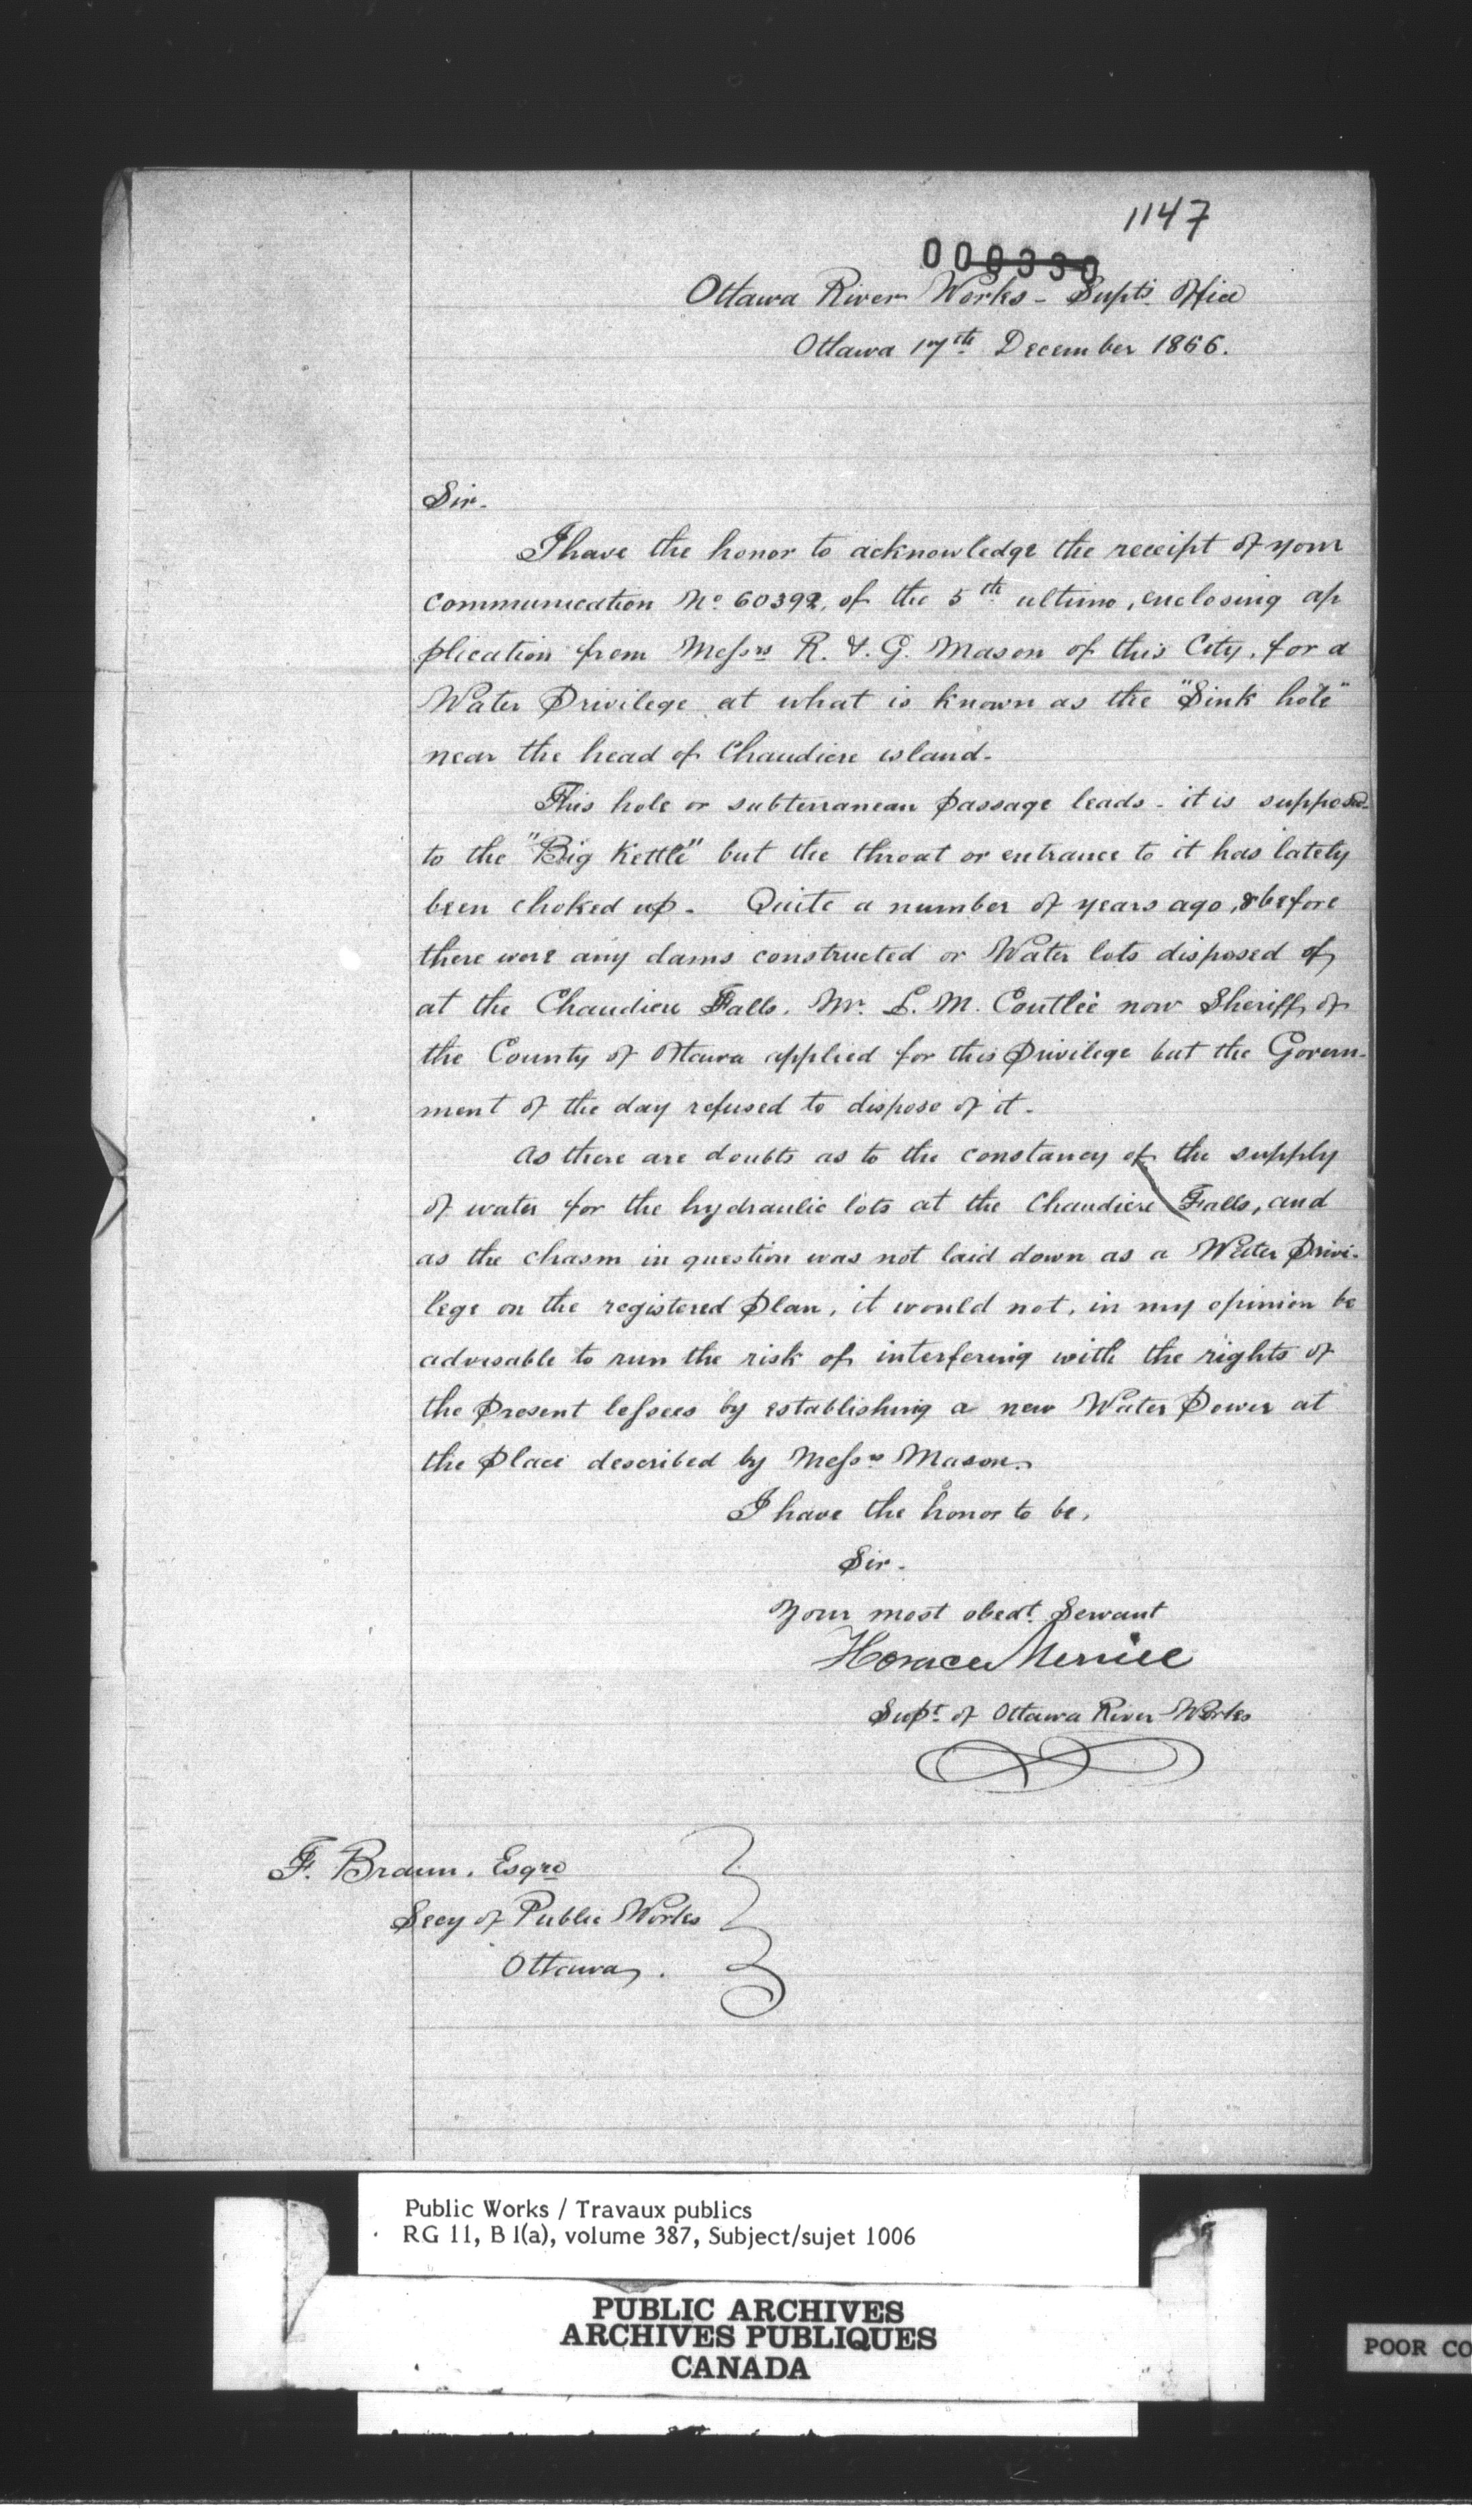 1147
000330
Ottawa River Works - Supts Office
Ottawa 17th December 1866.
Sir.
I have the honor to acknowledge the receipt of your
communication No. 60392, of the 5th ultimo, enclosing ap
plication from Messrs R. & G. Mason of this City, for a
Water Privilege at what is known as the "Sink hole"
near the head of Chaudiere island.
This hole or subterranean passage leads - it is supposed-
to the "Big Kettle" but the throat or entrance to it has lately
been choked up. Quite a number of years ago, & before
there were any dams constructed or Water lots disposed of
at the Chaudiere Falls, Mr. L. M. Coutlée now Sheriff of
the County of Ottawa applied for this Privilege but the Govern-
ment of the day refused to dispose of it.
As there are doubts as to the constancy of the supply
of water for the hydraulic lots at the Chaudiere Falls, and
as the chasm in question was not laid down as a Water Privi-
lege on the registered Plan, it would not, in my opinion be
advisable to run the risk of interfering with the rights of
the Present lessees by establishing a new Water Power at
the Place described by Messrs Mason.
I have the honor to be,
Sir.
Your most obedt. Servant
Horace Merrill
Supt. of Ottawa River Works
F. Braun, Esqre
Secy of Public Works
Ottawa.
Public Works / Travaux publics
RG 11, B 1(a), volume 387, Subject/sujet 1006
PUBLIC ARCHIVES
ARCHIVES PUBLIQUES
CANADA
POOR CO